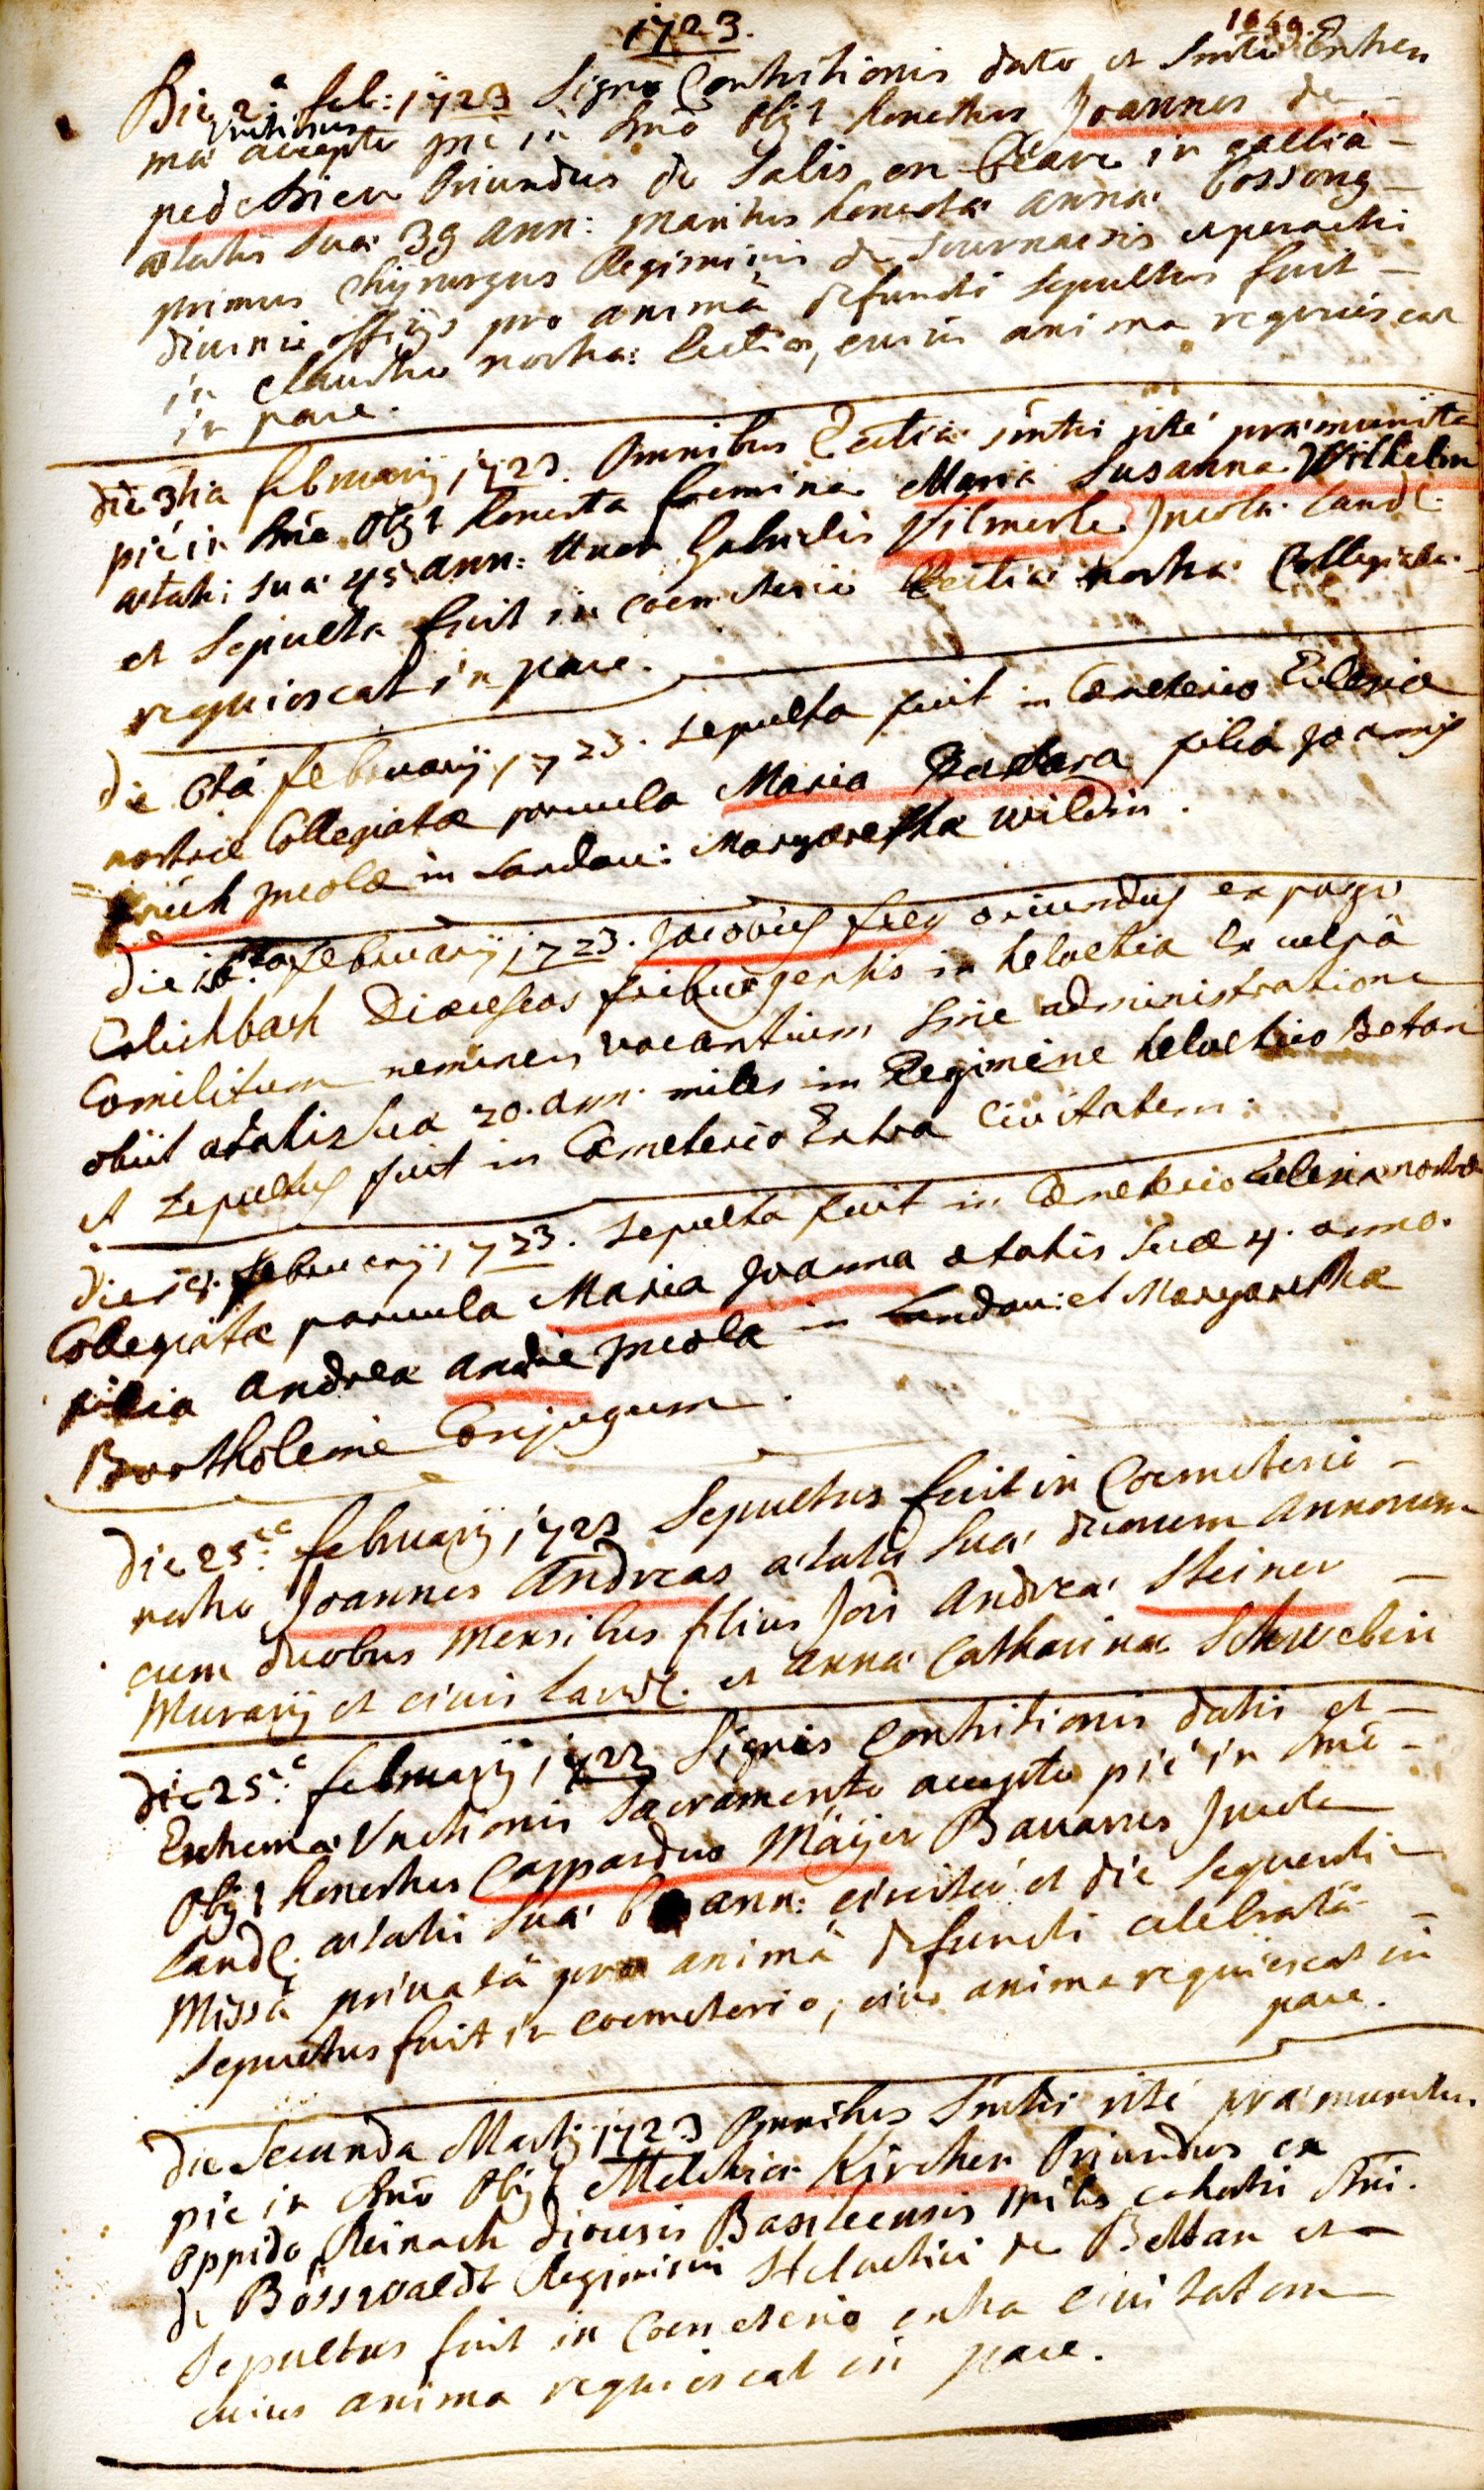 1723.
Die 2.a feb: 1723 Signo Contritionis dato et Smto Extrem
mæ Unctionis accepto pié in Dno Obijt honestus Joannes de
pedestrien Oriundus de Salis en Béarn in gallia
ætatis suæ 39 ann: maritus honestæ annæ
primus Chyrurgus Regiminis de Tournaisis, peractis
diuinis officijs pro animâ defuncti sepultus fuit
in claustro nostræ Ecctiæ, cuius anima requiescat
in pace.
die 3tia februarij 1723. Omnibus Ecctiæ Smtis rité præmunita
pié in Dno Obijt honesta foemina Maria Susanna Wilhelm
ætatis suæ 45 ann: Uxor Gabrielis Vilmerle Jncolæ Land.
et Sepulta fuit in coemeterio Ecctiæ nostræ Collegiatæ.
requiescat in pace.
die 6ta februarij 1723. sepulta fuit in Cæmeterio Eclesiæ
nostræ Collegiatæ paruula Maria Barbara filia Joannis
Jncolæ in Landau: Margaretha Wildin.
die februarij 1723. Jacobus frey oriundus ex pago
Diæceseos friburgensis in helvetia Ex culpâ
Comilitum neminem vocantium sine administratione
obiit ætatis suæ 20. ann. miles in Regimine helvetico Betan
et sepultus fuit in Cæmeterio Extra Civitatem.
die februarij 1723. sepulta fuit in Cæmeterio Eclesiæ nostræ
Collegiatæ paruula Maria Joanna ætatis suæ 4. anno.
filia Andreæ andrie Jncola in Landau: et Margaretha
Bartholemie Conjugum.
die 25.ta februarij 1723 Sepultus fuit in Coemeterio
nostro Joannes Andreas ætatis suæ duorum annorum
cum duobus mensibus filius Jois Andreæ Steiner
Murarij et ciuis Land. et annæ Catharinæ Schwebin
die 25.ta februarij 1723 Signis Contritionis datis et
Extremæ Unctionis Sacramento accepto pié in Dno
Obijt honestus Caspardus Mäijer Bauarus Jncola
Land. ætatis suæ ann: circiter et die sequenti
Missâ priuatâ pro animâ defuncti celebratâ
Sepultus fuit in coemeterio, eius anima requiescat in
pace.
die Secunda Martij 1723 Omnibus Smtis rité præmunitus
pié in Dno Obijt Melchior Kircher Oriundus ex
oppido Reinach dioesis Basileensis miles cohortis Dni.
de Bösswaldt Regiminis Helvetici de Bettan et
Sepultus fuit in Coemeterio extra ciuitatem
cuius anima requiescat in pace.